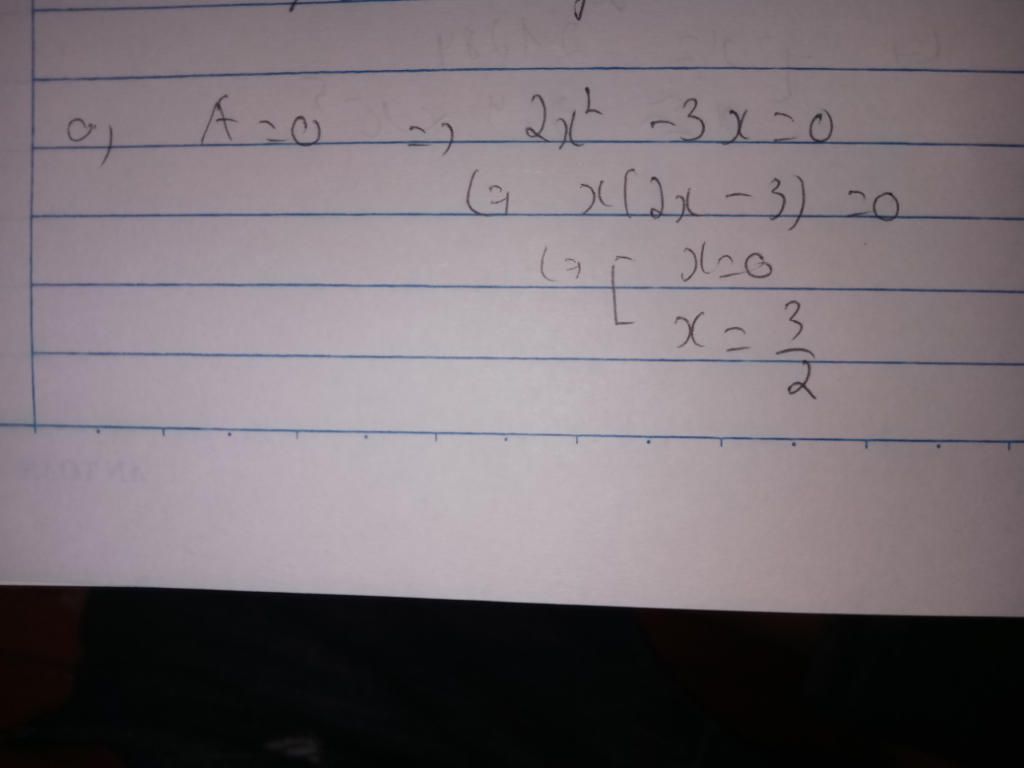 a, A = 0 => 2x² - 3x = 0
(=> x(2x - 3) = 0
(=> [ x = 0
x = 3/2